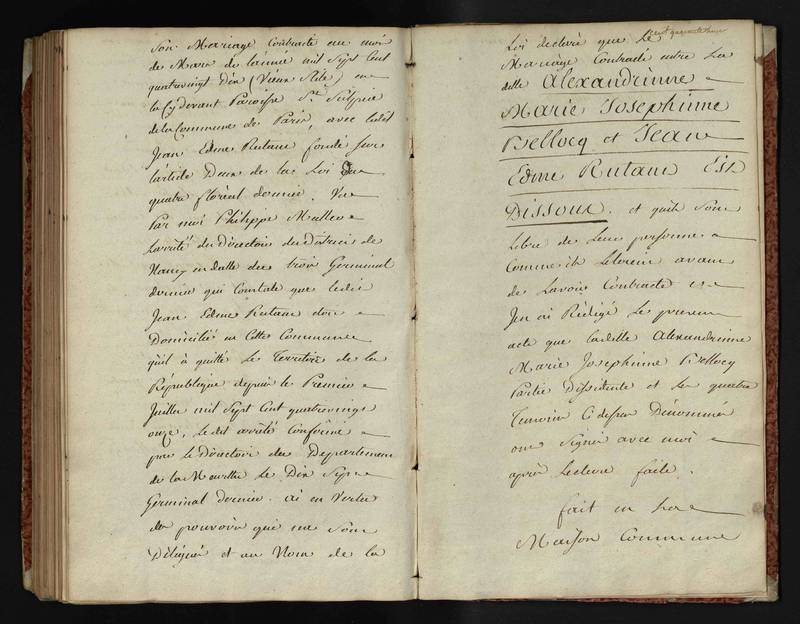 Son Mariage Contracté au mois
de Mars de l'année mil Sept Cent
quatrevingt Dix (Vieux Stile) en
la Cydevant Paroisse St. Sulpice
de la Commune de Paris, avec ledit
Jean Edme Rutant fondé sur
l'article Deux de la Loi du
quatre floréal dernier. Vu
Par moi Philippe Mallevé
l'arrêté du Directoire du District de
Nancy en datte du trois Germinal
dernier qui Constate que ledit
Jean Edme Rutant dont
Domicilié en Cette Commune
qu'il à quitté le Territoire de la
République depuis le Premier
Juillet mil Sept Cent quatrevingt
onze, ledit arrêté Confirmé
par le Directoire du Departement
de la Meurthe le Dix Sept
Germinal dernier. ai en Vertu
des pouvoirs qui me Sont
Délégués et au Nom de la
Loi declaré que le
Mariage Contracté entre la
ditte Alexandrinne
Marie Josephinne
Bellocq et Jean
Edme Rutant Est
Dissout. et quils Sont
Libre de Leur personne
Comme ils l'etoient avant
de l'avoir Contracté et
J'en ai Rédigé le présent
acte que laditte Alexandrinne
Marie Josephinne Bellocq
Partie Dissidente et les quatre
Temoins Cidessus Dénommés
ont Signés avec moi
après lecture faite.
fait en la
Maison Commune